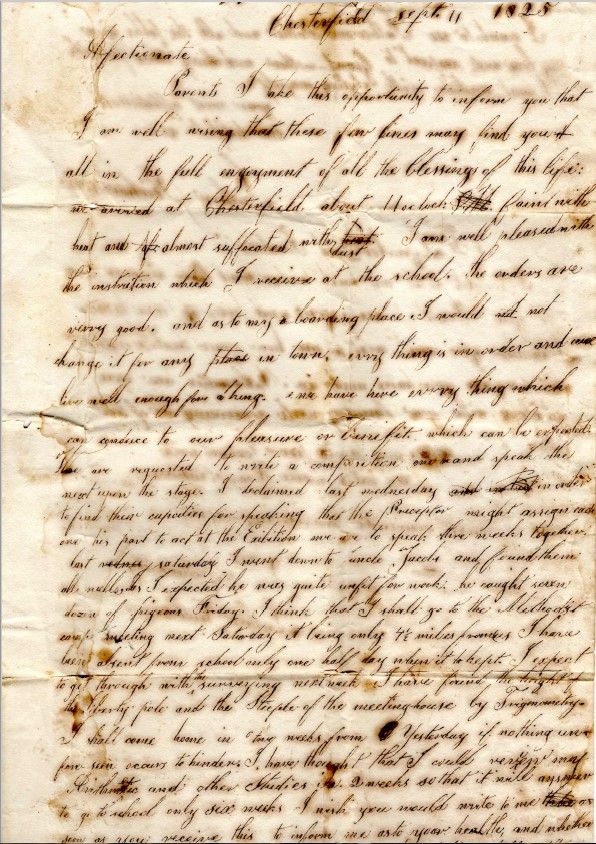 Chesterfield Sept 11 1825
Affectionate
Parents I take this opportunity to inform you that
I am well wising that these few lines may find you
all in the full enjoyment of all the blessings of this life:
we arrived at Chesterfield about 4 oclock faint with
heat and almost suffocated with dust I am well pleased with
the instruction which I receive at the school. the orders are
verry good. and as to my boarding place I would not
change it for any in town, evry thing is in order and
live well enough for a king. we have here evvry thing which
can conduce to our pleasure or benefit which can be expected.
We are requested to write a composition one and speak the
next upon the stage. I declaimed last wednesday in order
to find their capcities for speaking that the Preceptor might assign each
one his part to act at the Exibition we are to speak three weeks together.
last saturday I went down to uncle Jacobs and found them
all well as I expected he was quite unfit for work. he caught seven
dozen of pigeons Friday. I think that I shall go to the Methodist
camp meeting next Saturday it being only 4½ miles from us I have
been absent from school only one half day when it kept. I expect
to go through with the surveying next week I have found the hight of
the liberty pole and the Steeple of the meetinghouse by Trigonometry.
I shall come home in two weeks from Yesterday if nothing un
for seen occurs to hinder. I have thought that I could my
Arithmetic and other Studies in 2 weeks so that it will answer
to go to school only six weeks I wish you would write to me as
soon as you receive this to inform me as to your health, and whether